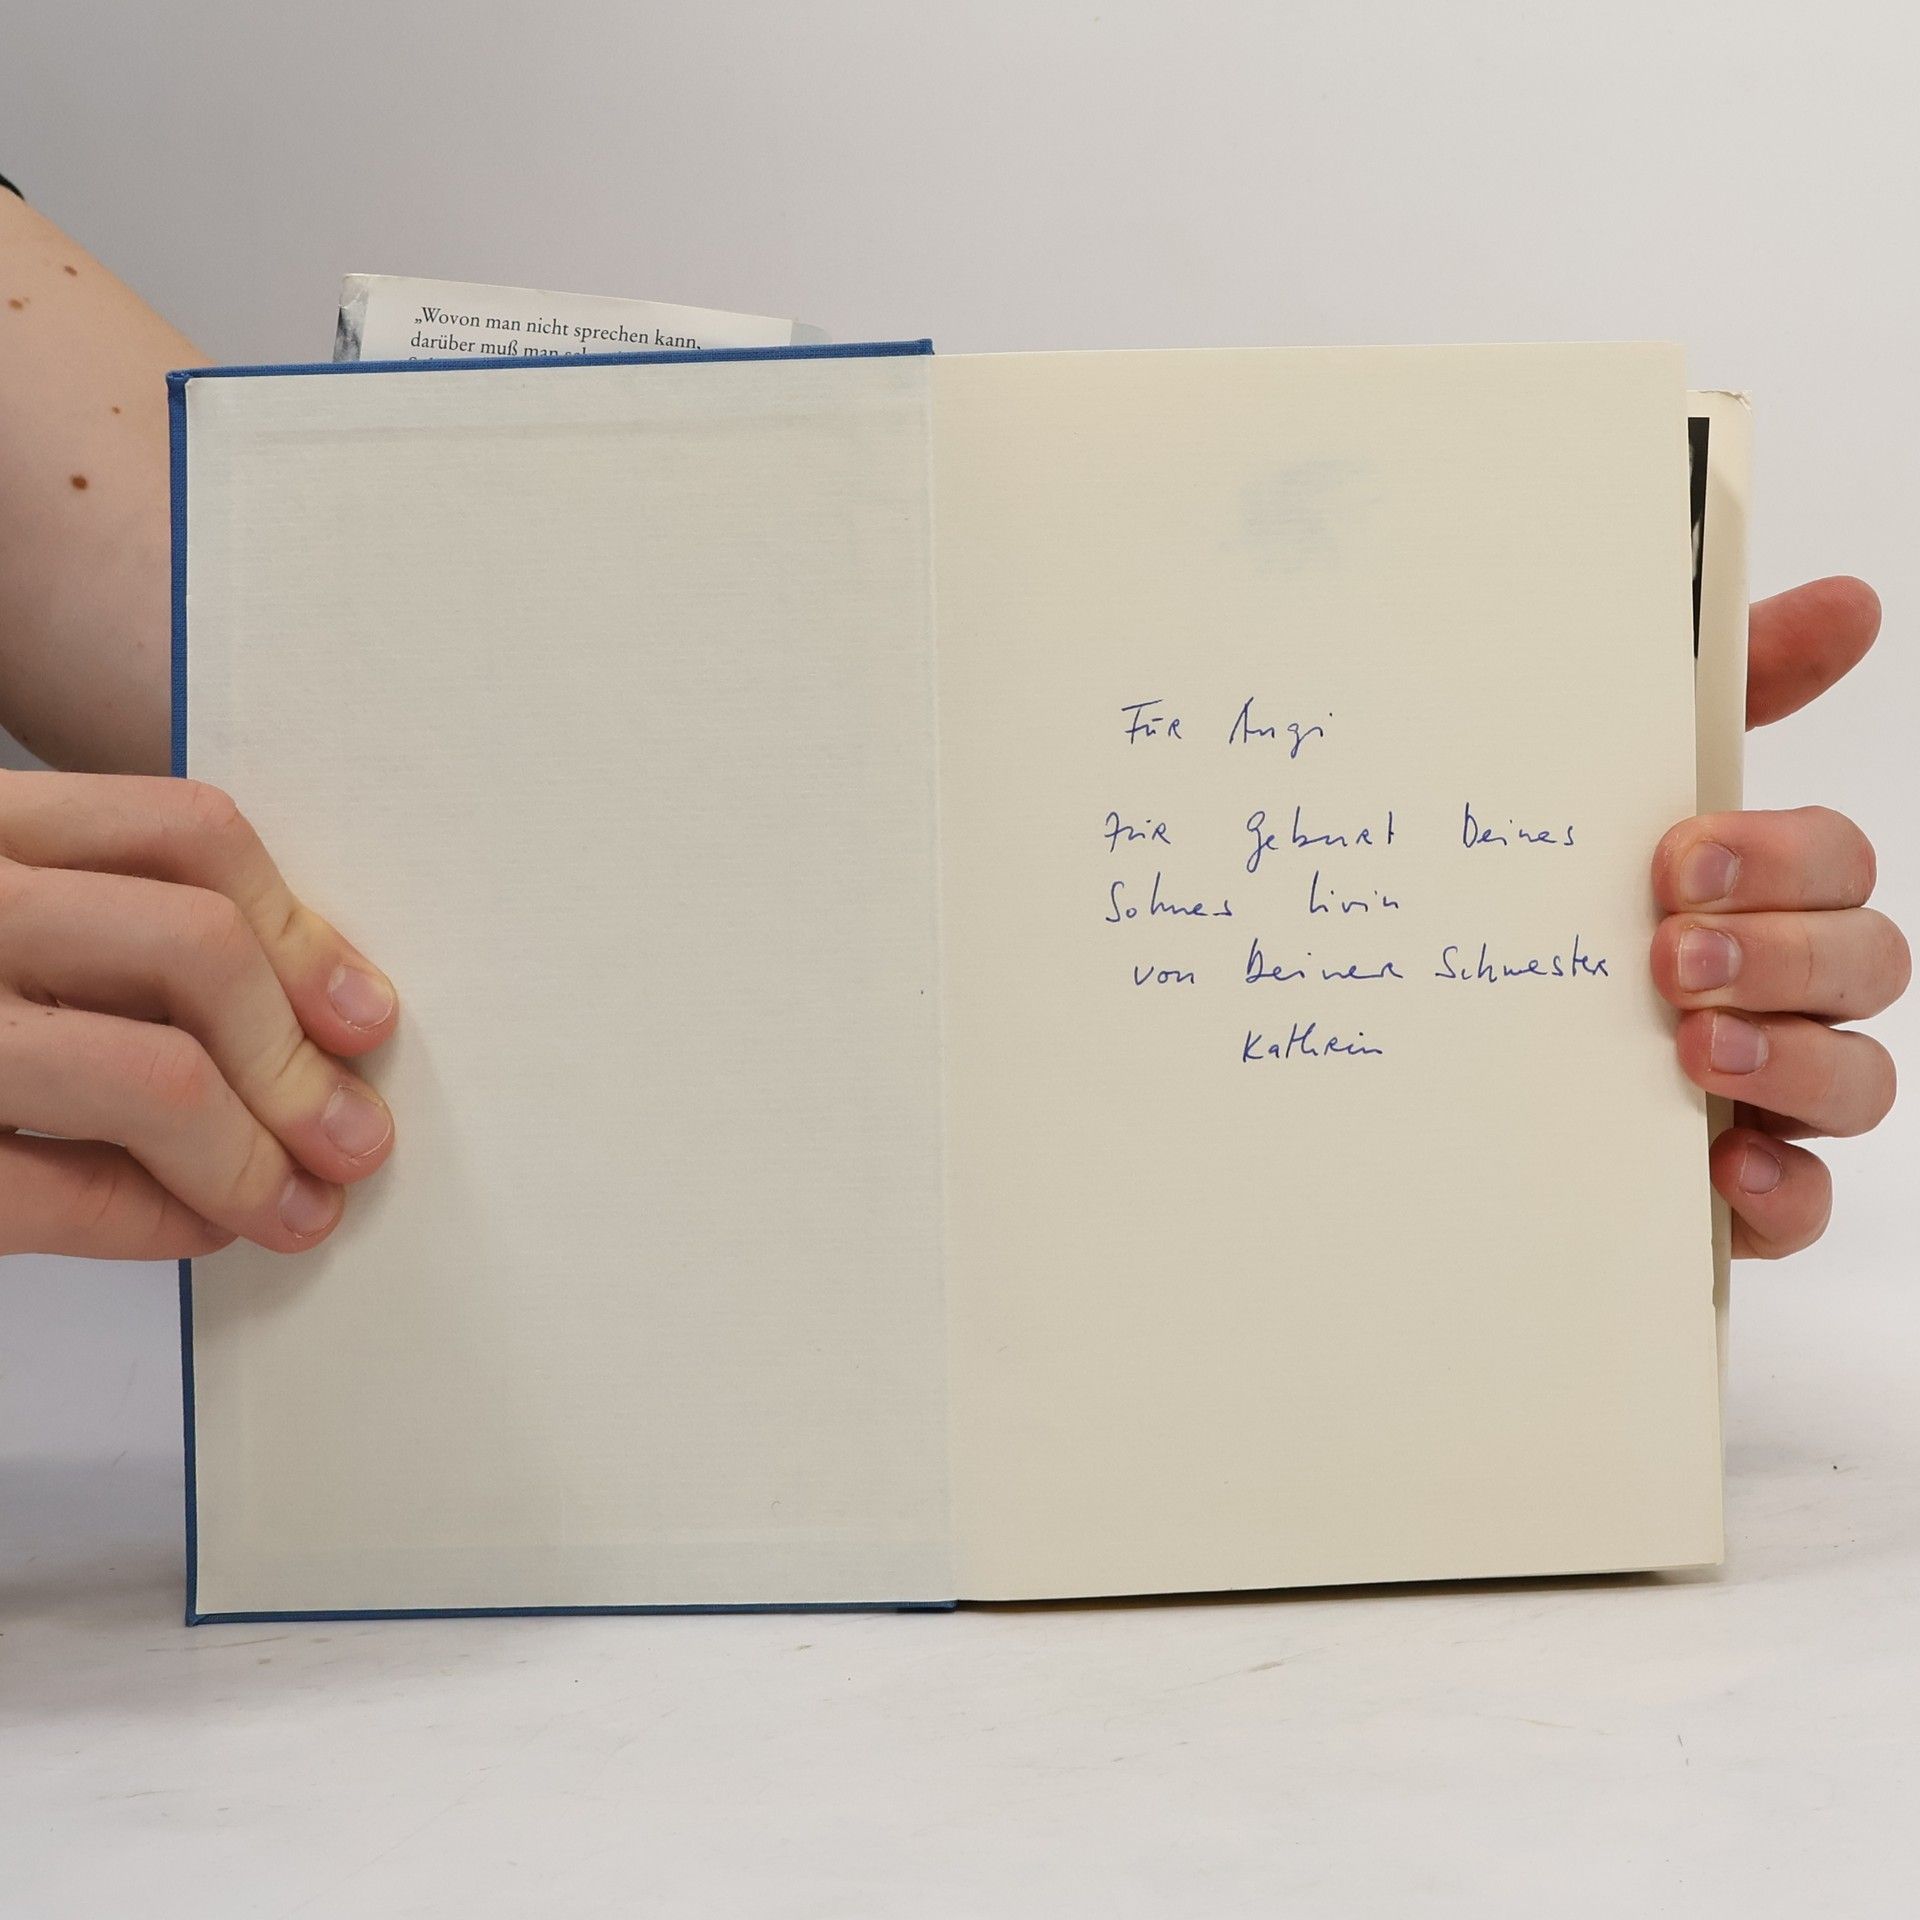 „Wovon man nicht sprechen kann,
darüber muß man
Für Angi
Zur Geburt Deines
Sohnes Livin
von Deiner Schwester
Kathrin